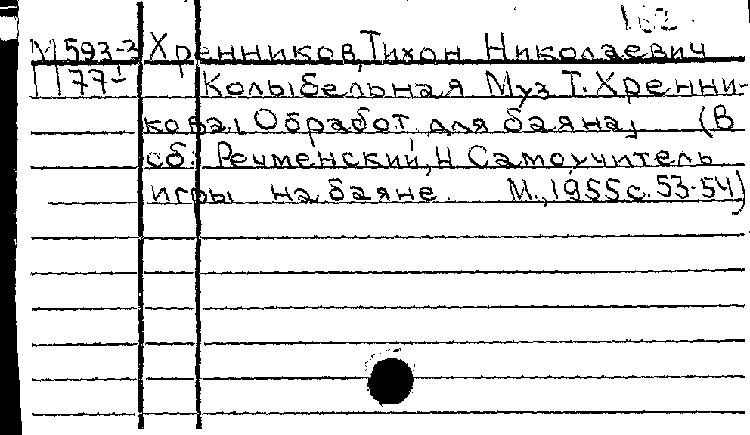 162.
М593-3 Хренников, Тихон Николаевич
П77-1 Колыбельная Муз Т. Хренни-
кова, Обработ. для баяна, (В
сб: Речменский, Н Самоучитель
игры на баяне. М., 1955 с. 53-54)